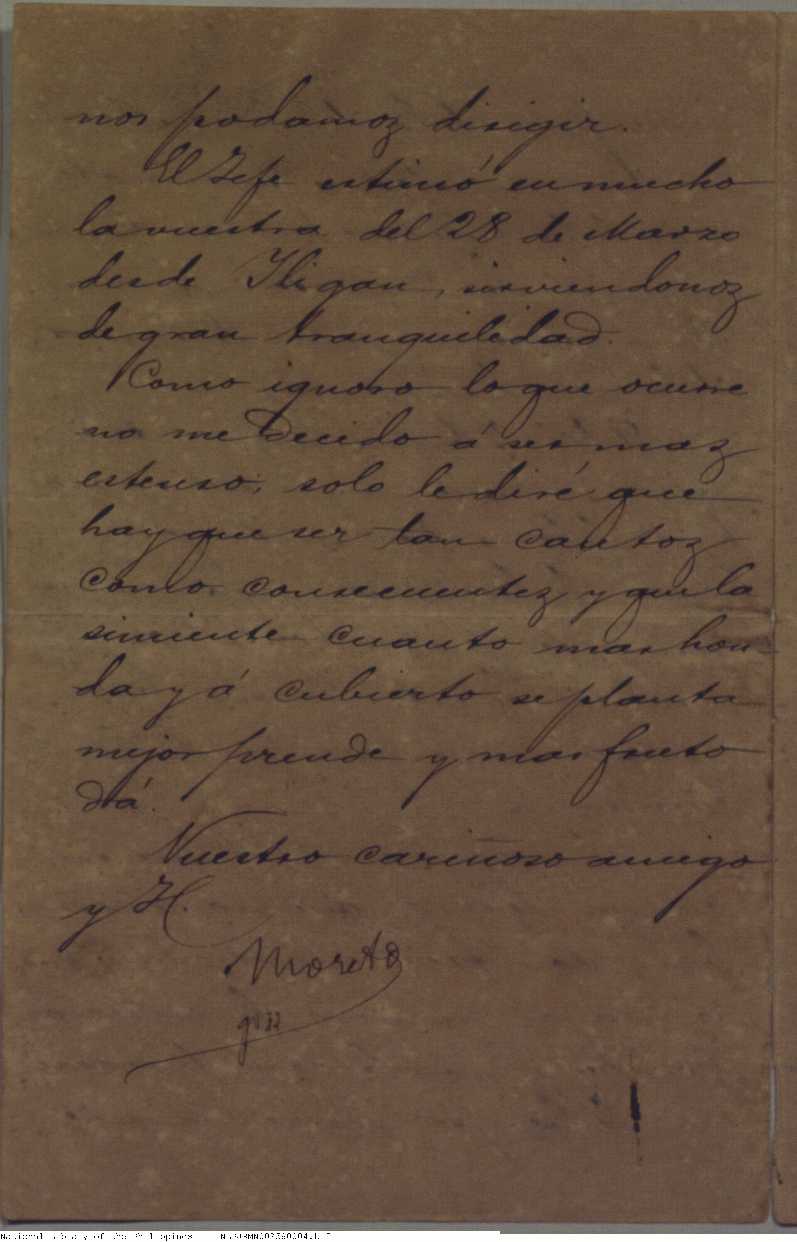 nos podamoz dirigir.
El Jefe estimó en mucho
la vuestra del 28 de Marzo
desde Iligan, sirviendonoz
de gran tranquilidad.
Como ignoro lo que ocurre
no me decido á ser maz
estenso; solo le diré que
hay que ser tan cautoz
como consecuentez y que la
simiente cuanto mas hon-
da y á cubierto se planta
mejor prende y mas fruto
dá.
Vuestro cariñoso amigo
y H.
Moreto
National Library of the Philippines